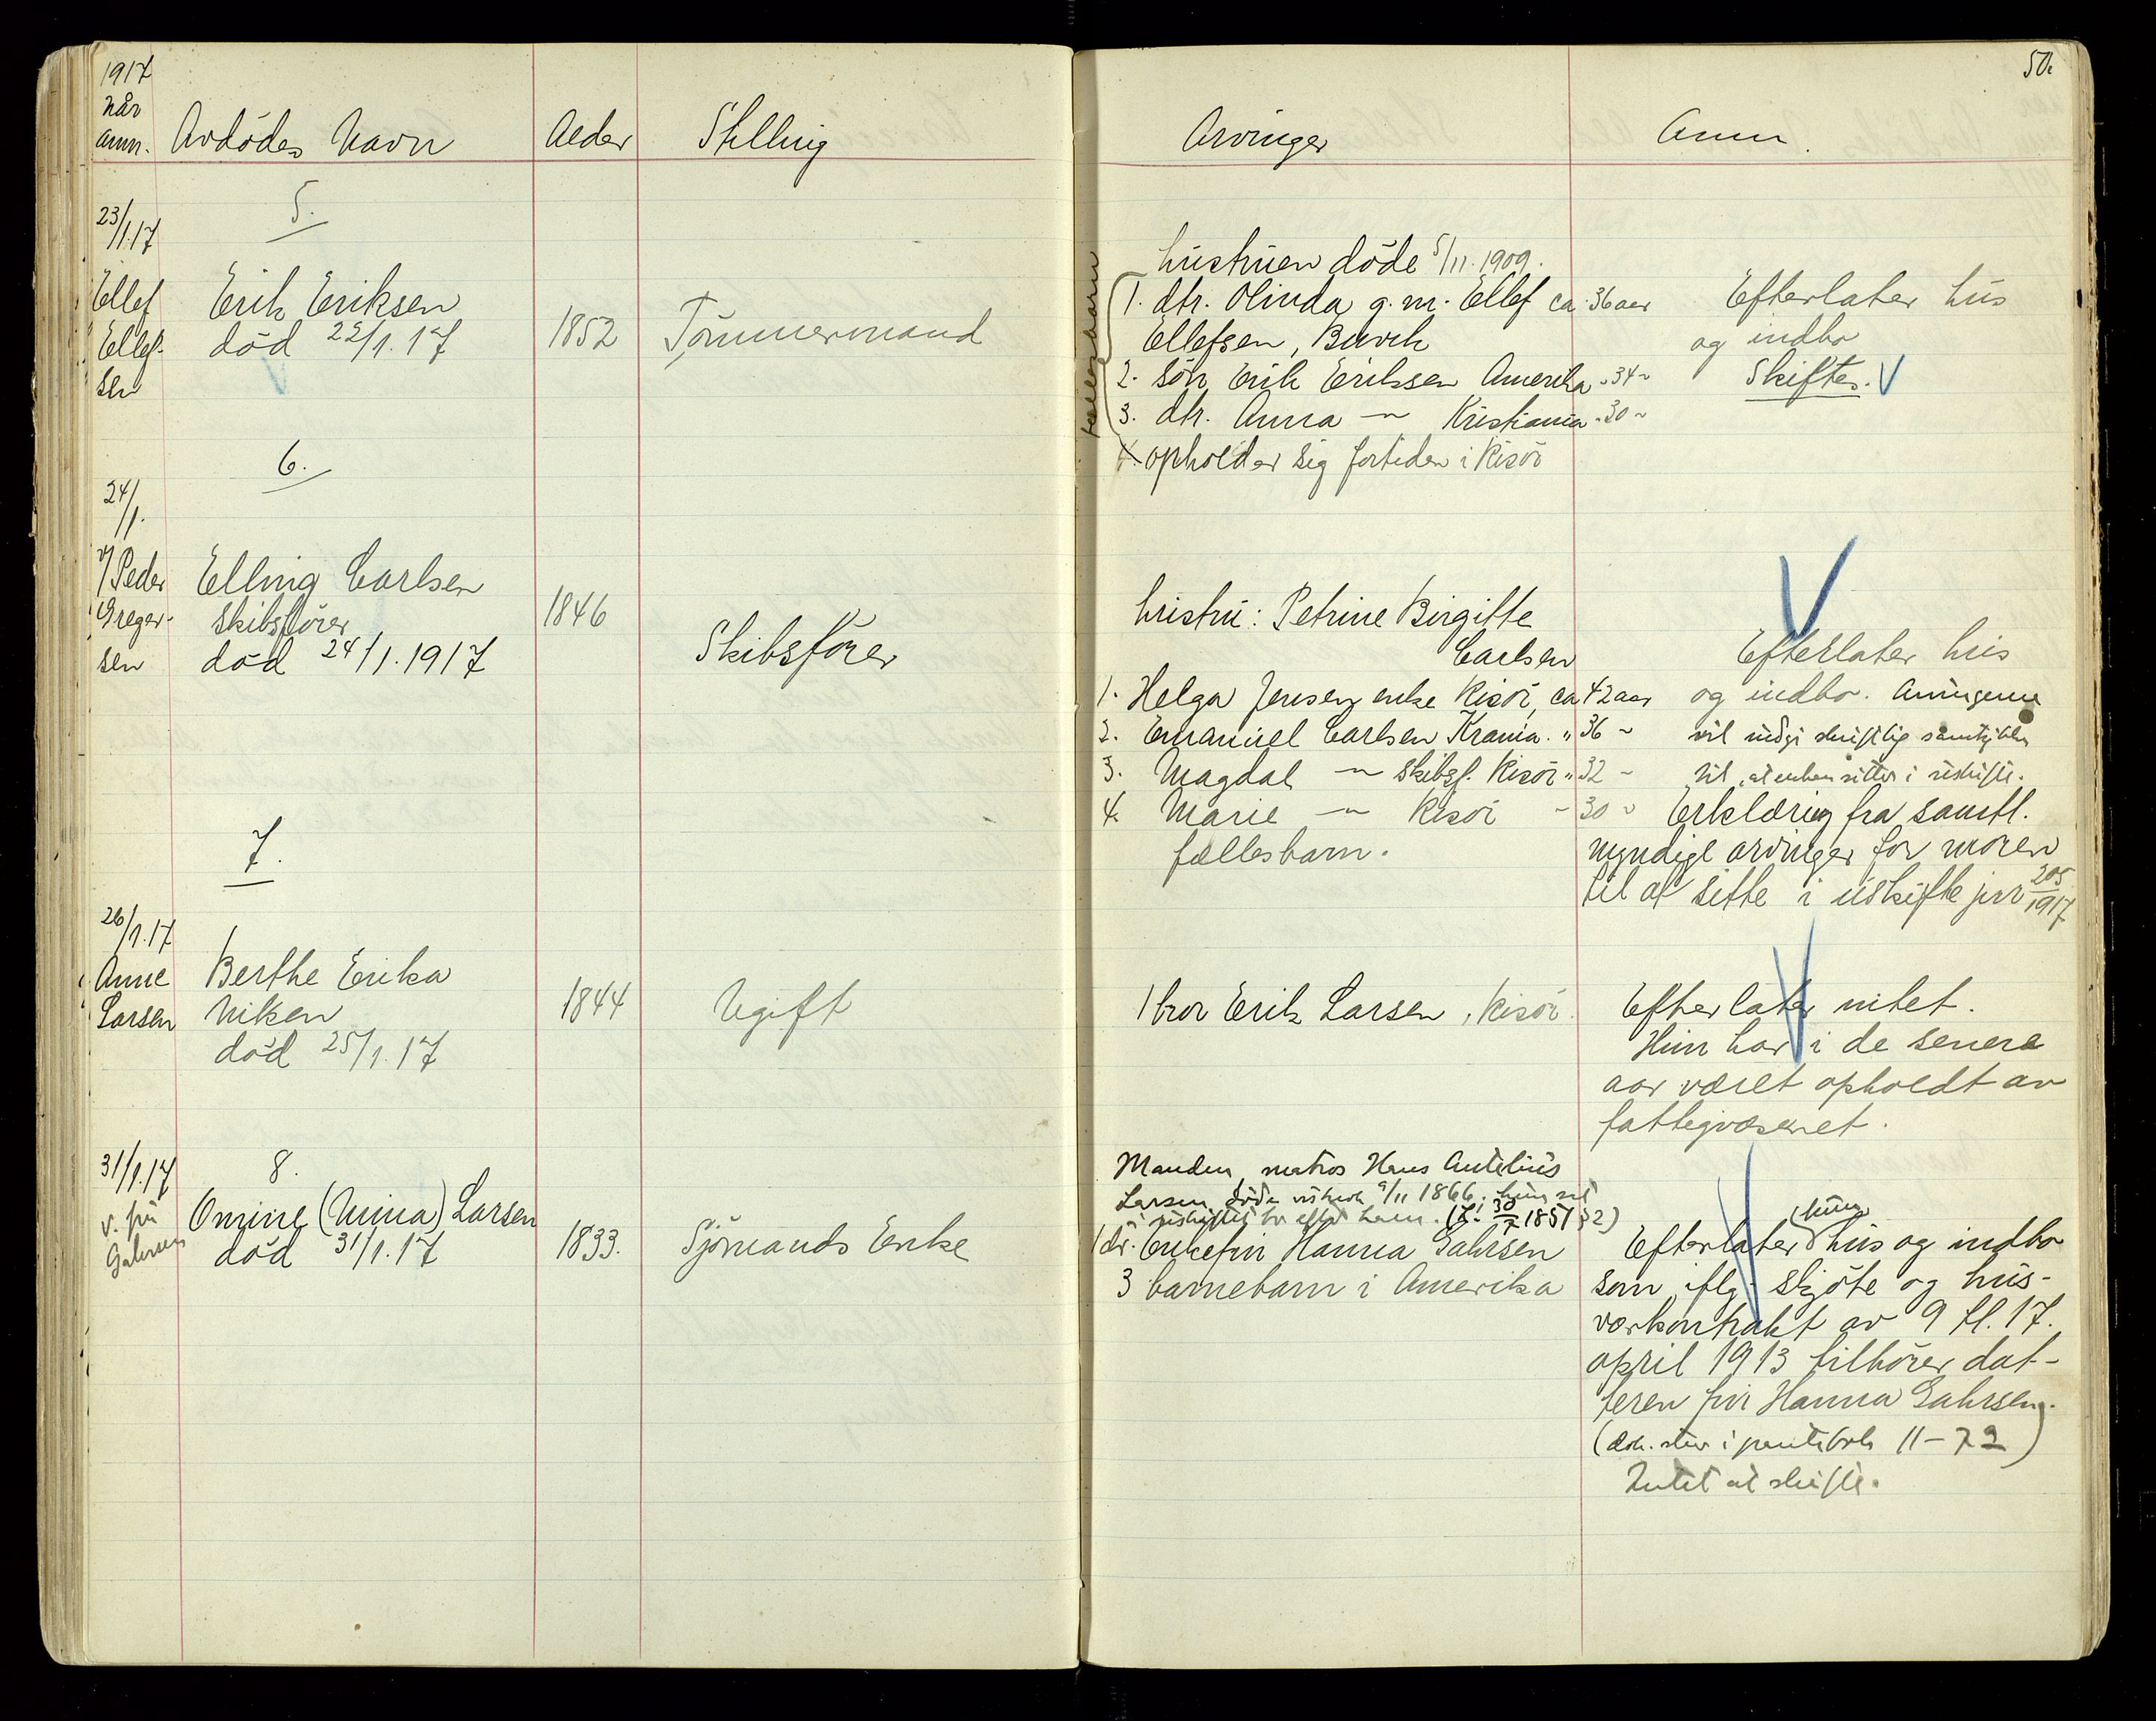 1917
Når
anm.
Avdödes Navn
Alder
Stilling
Arvinger
Anm.
50.
5.
23/1.17
Ellef
Ellef-
sen
Erik Eriksen
död 22/1.17
1852
Tömmermand
fællesbarn
hustruen döde 5/11.1909.
1. dtr. Olinda g.m. Ellef ca. 36 aar
Ellefsen, Buvik
2. sön Erik Eriksen Amerika - 34 ~
3. dtr. Anna — Kristiania - 30 ~
opholder sig fortiden i Risör
Efterlater hus
og indbo
Skiftes. V
6.
24/1.
v/Peder
Greger-
sen
Elling Carlsen
Skibsförer
död 24/1.1917
1846
Skibsförer
hustru: Petrine Birgitte
Carlsen
1. Helga Jensen, enke Risör, ca 42 aar
2. Emanuel Carlsen Krania. " 36 ~
3. Magdal — skibsf. Risör " 32 ~
4. Marie — Risör - 30 ~
fællesbarn.
V
Efterlater hus
og indbo. Arvingerne
vil undgi skriftlig samtykke
til, at enken sitter i uskifte.
Erklæring fra samtl.
myndige arvinger for moren
til at sitte i uskifte jnr 205/1917
7.
26/1.17
Anne
Larsen
Berthe Erika
Niken
död 25/1.17
1844
Ugift
1 bror Erik Larsen, Risör.
Efterlater intet.
Hun har i de senere
aar været opholdt av
fattigvæsenet.
8.
31/1.17
v. fru
Gahrsen
Omine (Mina) Larsen
död 31/1.17
1833.
Sjömands Enke
Manden, matros Hans Antilius
Larsen döde 9/11 1866. hun sat
i uskiftet bo efter ham. (L. 30/7 1851 § 2)
1 dr. Enkefru Hanna Gahrsen
3 barnebarn i Amerika
Efterlater hus og indbo
som iflg. skjöte og hus-
værkontrakt av 9 tl. 17.
april 1913 tilhörer dat-
teren fru Hanna Gahrsen.
(dok. i pantebok 11-72)
Intet at skifte.